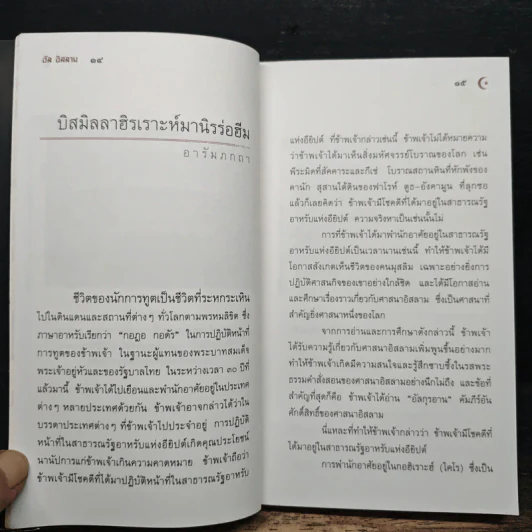 อัล อิสลาม ๑๔
บิสมิลลาฮิรเราะห์มานิรร่อฮีม
อารัมภกถา
ชีวิตของนักการทูตเป็นชีวิตที่ระหกระเหิน
ไปในดินแดนและสถานที่ต่างๆ ทั่วโลกตามพรหมลิขิต ซึ่ง
ภาษาอาหรับเรียกว่า "กอฎอ กอดัร" ในการปฏิบัติหน้าที่
การทูตของข้าพเจ้า ในฐานะผู้แทนของพระบาทสมเด็จ
พระเจ้าอยู่หัวและของรัฐบาลไทย ในระหว่างเวลา ๓๐ ปีที่
แล้วมานี้ ข้าพเจ้าได้ไปเยือนและพำนักอาศัยอยู่ในประเทศ
ต่างๆ หลายประเทศด้วยกัน ข้าพเจ้าอาจกล่าวได้ว่าใน
บรรดาประเทศต่างๆ ที่ข้าพเจ้าไปประจำอยู่ การปฏิบัติ
หน้าที่ในสาธารณรัฐอาหรับแห่งอียิปต์เกิดคุณประโยชน์
นานัปการแก่ข้าพเจ้าเกินความคาดหมาย ข้าพเจ้าถือว่า
ข้าพเจ้ามีโชคดีที่ได้มาปฏิบัติหน้าที่ในสาธารณรัฐอาหรับ
๑๕
แห่งอียิปต์ ที่ข้าพเจ้ากล่าวเช่นนี้ ข้าพเจ้าไม่ได้หมายความ
ว่าข้าพเจ้าได้มาเห็นสิ่งมหัศจรรย์โบราณของโลก เช่น
พีระมิดที่สัคคาระและกีเซ่ โบราณสถานหินที่หักพังของ
คานัก สุสานใต้ดินของฟาโรห์ ตูธ-อังคามูน ที่ลุกซอ
แล้วก็เลยคิดว่า ข้าพเจ้ามีโชคดีที่ได้มาอยู่ในสาธารณรัฐ
อาหรับแห่งอียิปต์ ความจริงหาเป็นเช่นนั้นไม่
การที่ข้าพเจ้าได้มาพำนักอาศัยอยู่ในสาธารณรัฐ
อาหรับแห่งอียิปต์เป็นเวลานานเช่นนี้ ทำให้ข้าพเจ้าได้มี
โอกาสสังเกตเห็นชีวิตของคนมุสลิม เฉพาะอย่างยิ่งการ
ปฏิบัติศาสนกิจของเขาอย่างใกล้ชิด และได้มีโอกาสอ่าน
และศึกษาเรื่องราวเกี่ยวกับศาสนาอิสลาม ซึ่งเป็นศาสนาที่
สำคัญยิ่งศาสนาหนึ่งของโลก
จากการอ่านและการศึกษาดังกล่าวนี้ ข้าพเจ้า
ได้รับความรู้เกี่ยวกับศาสนาอิสลามเพิ่มพูนขึ้นอย่างมาก
ทำให้ข้าพเจ้าเกิดมีความสนใจและรู้สึกซาบซึ้งในรสพระ
ธรรมคำสั่งสอนของศาสนาอิสลามอย่างนึกไม่ถึง และข้อที่
สำคัญที่สุดก็คือ ข้าพเจ้าได้อ่าน "อัลกุรอาน" คัมภีร์อัน
ศักดิ์สิทธิ์ของศาสนาอิสลาม
นี่แหละที่ทำให้ข้าพเจ้ากล่าวว่า ข้าพเจ้ามีโชคดีที่
ได้มาอยู่ในสาธารณรัฐอาหรับแห่งอียิปต์
การพำนักอาศัยอยู่ในกอฮิเราะฮ์ (ไคโร) ซึ่งเป็น